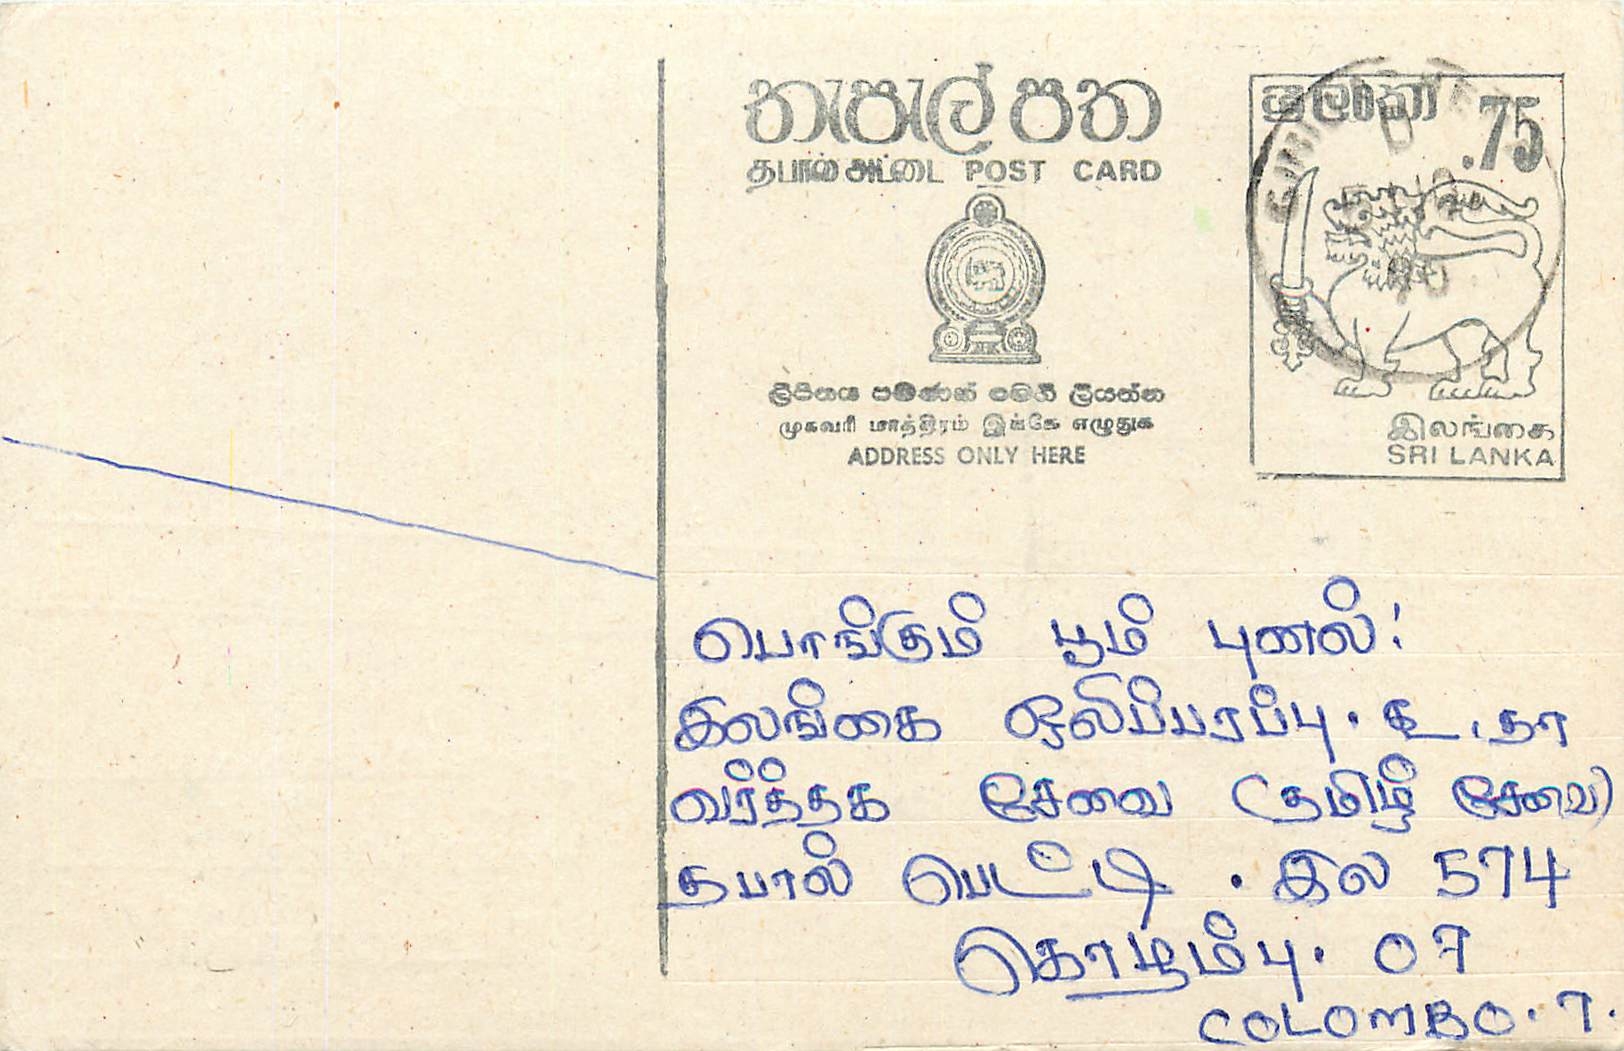 තැපැල් පත
தபால் அட்டை POST CARD
ලිපිනය පමණක් මෙහි ලියන්න
முகவரி மாத்திரம் இங்கே எழுதுக
ADDRESS ONLY HERE
ශ්‍රී ලංකා
.75
இலங்கை
SRI LANKA
பொங்கும் பூம் புனல்!
இலங்கை ஒலிப்பரப்பு. கூ.தா
வர்த்தக சேவை (தமிழ் சேவை)
தபால் பெட்டி . இல 574
கொழும்பு. 07
COLOMBO. 7.